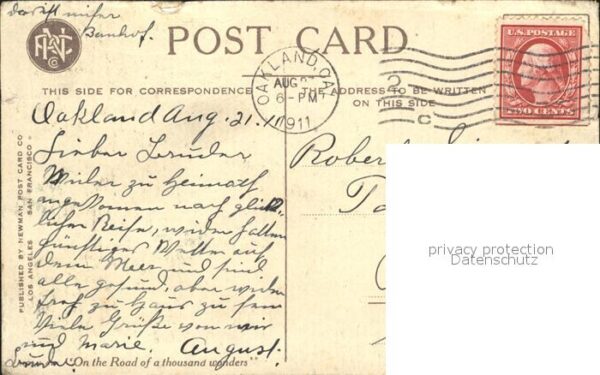 Darist unser
Banhof.
POST CARD
THIS SIDE FOR CORRESPONDENCE
THE ADDRESS TO BE WRITTEN
ON THIS SIDE
OAKLAND, CAL.
AUG
6-PM
1911
2
C
U.S. POSTAGE
TWO CENTS
Oakland Aug. 21. 1911
Lieber Bruder
Wider zu Heimath
angekomen nach glück-
licher Reise, wider hatten
günstiges Wetter auf
dem Meer und sind
alle gesund, aber wider
froh zu Haus zu sein
Viele Grüße von mir
und Marie. August.
Bruder
"On the Road of a thousand wonders"
PUBLISHED BY NEWMAN POST CARD CO
LOS ANGELES & SAN FRANCISCO
Robert
privacy protection
Datenschutz